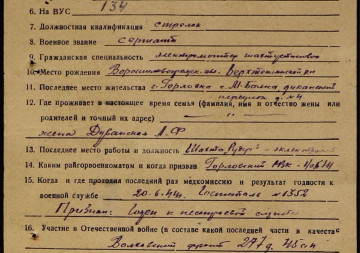 6. На ВУС 134
7. Должностная квалификация стрелок
8. Военное звание сержант
9. Гражданская специальность электромонтер
10. Место рождения Ворошиловградск. обл.
11. Последнее место жительства г. Горловка
12. Где проживает в настоящее время семья (фамилия, имя и отчество жены или
родителей и точный их адрес)
жена А. Ф
13. Последнее место работы и должность Шахта
14. Каким райгорвоенкоматом и когда призван Горловский РВК
15. Когда и где проходил последний раз медкомиссию и результат годности к
военной службе 20.6.44г. госпиталь № 1352
Признан: годен к нестроевой службе
16. Участие в Отечественной войне (в составе какой последней части в качестве
Волховский фронт